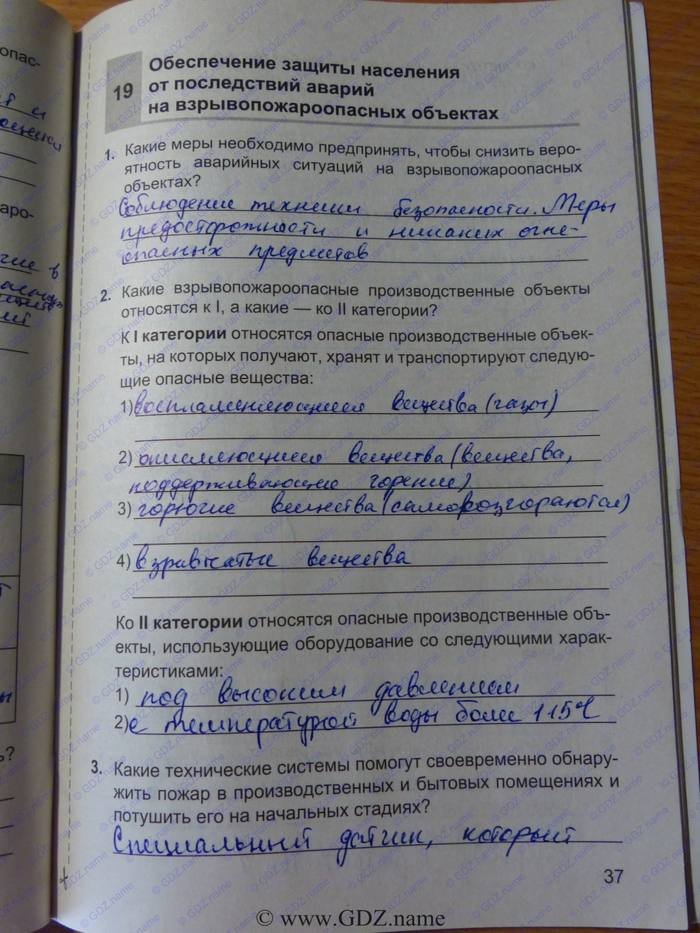 19
Обеспечение защиты населения
от последствий аварий
на взрывопожароопасных объектах
1. Какие меры необходимо предпринять, чтобы снизить веро-
ятность аварийных ситуаций на взрывопожароопасных
объектах?
Соблюдение техники безопасности. Меры
предосторожности и никаких огне-
опасных предметов
2. Какие взрывопожароопасные производственные объекты
относятся к I, а какие — ко II категории?
К I категории относятся опасные производственные объек-
ты, на которых получают, хранят и транспортируют следую-
щие опасные вещества:
1) воспламеняющиеся вещества (газы)
2) окисляющиеся вещества (вещества,
поддерживающие горение)
3) горючие вещества (самовозгораются)
4) взрывчатые вещества
Ко II категории относятся опасные производственные объ-
екты, использующие оборудование со следующими харак-
теристиками:
1) под высоким давлением
2) с температурой воды более 115°C
3. Какие технические системы помогут своевременно обнару-
жить пожар в производственных и бытовых помещениях и
потушить его на начальных стадиях?
Специальный датчик, который
37
© www.GDZ.name